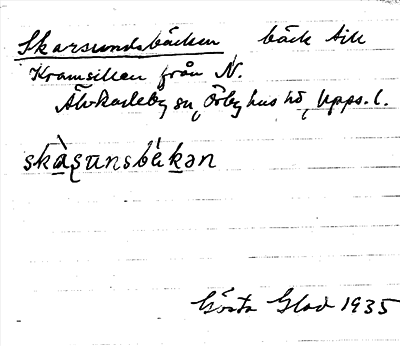 Skarsundsbäcken, bäck till
Kramsillen från N.
Älvkarleby sn, Örbyhus hd, Upps. l.
skàʂunsbɛ̀kən
Gösta Glad 1935